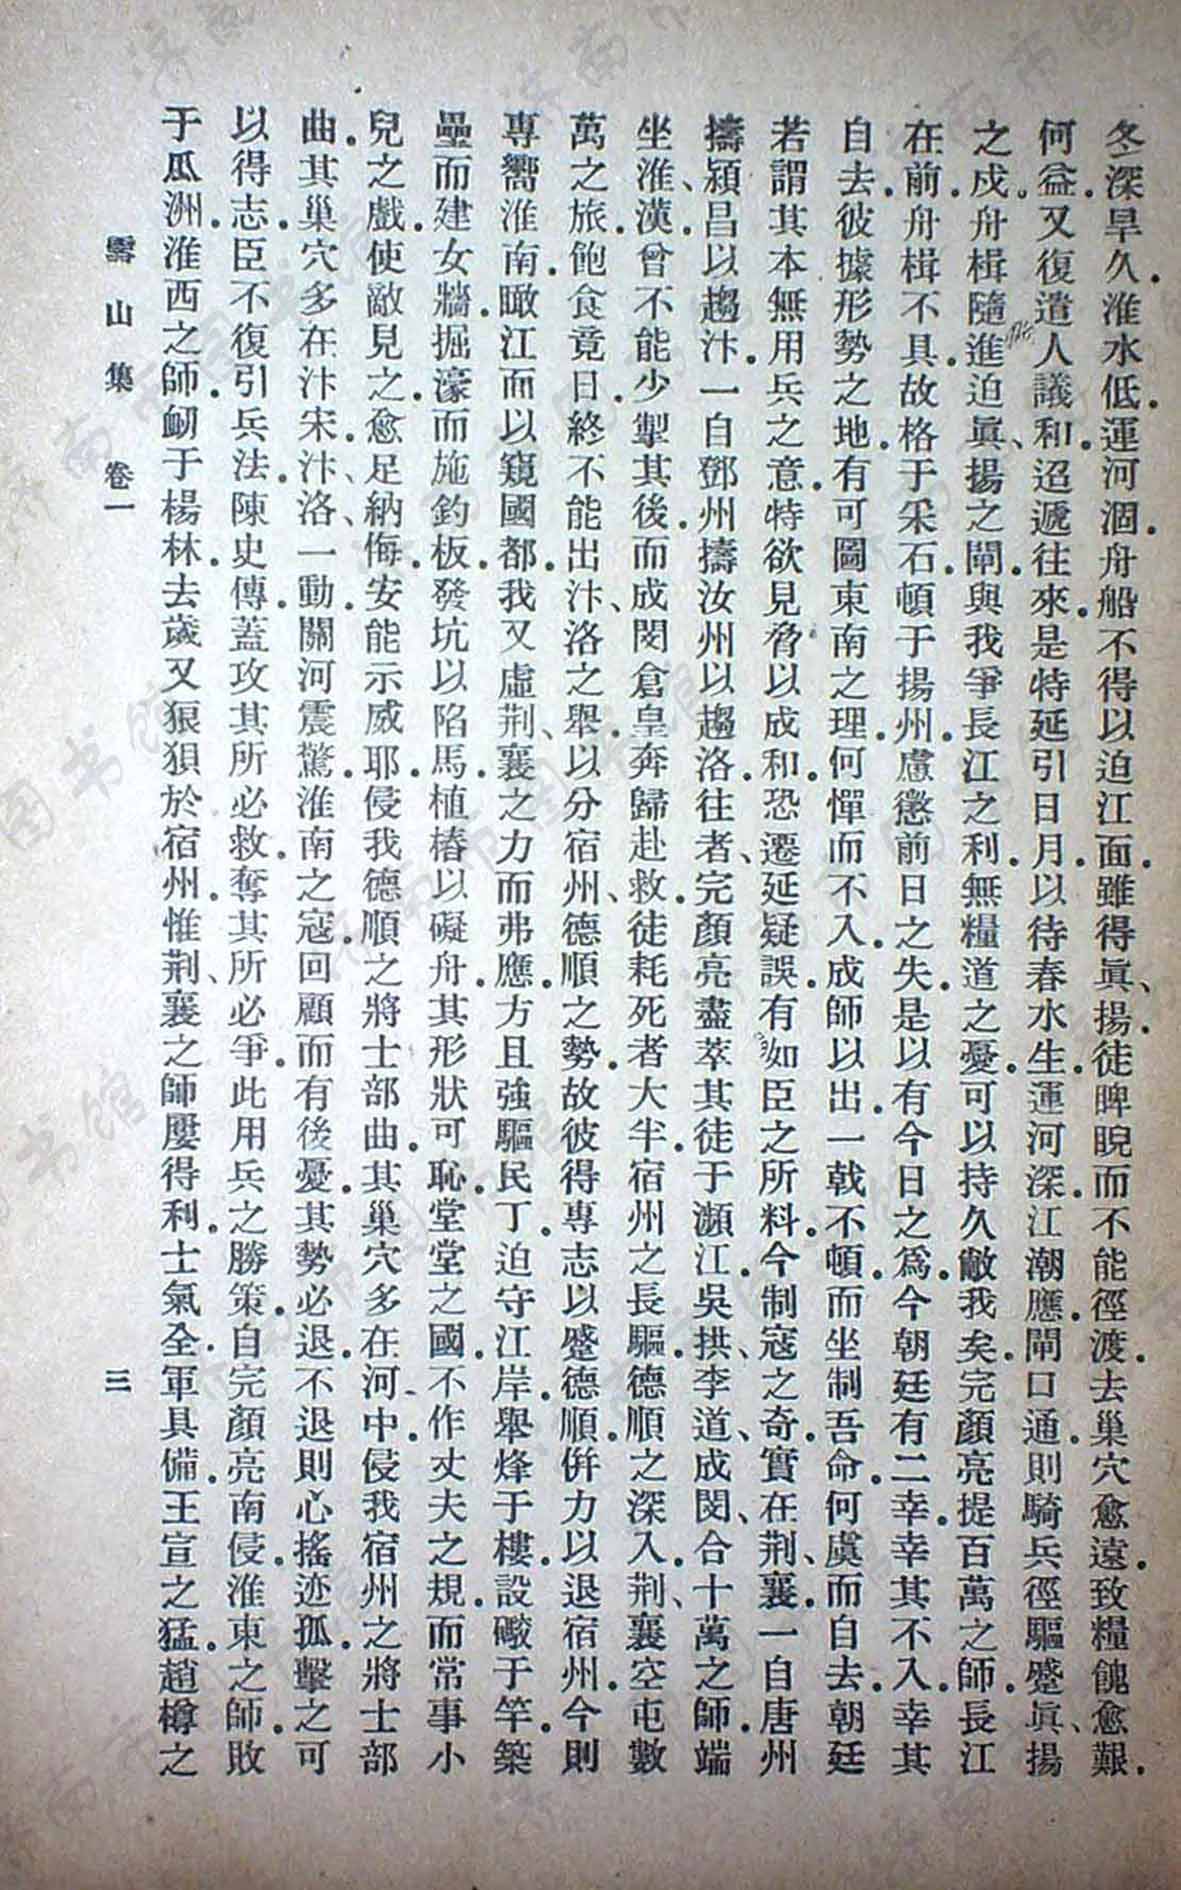 冬深旱久．淮水低．運河涸．舟船不得以迫江面．雖得眞、揚．徒睥睨而不能徑渡．去巢穴愈遠．致糧餽愈艱．
何益．又復遣人議和．迢遞往來．是特延引日月．以待春水生．運河深．江潮應．閘口通．則騎兵徑驅．蹙眞、揚
之戍．舟楫隨進．迫眞、揚之閘．與我爭長江之利．無糧道之憂．可以持久敝我矣．完顏亮提百萬之師．長江
在前．舟楫不具．故格于采石．頓于揚州．慮懲前日之失．是以有今日之爲．今朝廷有二幸．幸其不入．幸其
自去．彼據形勢之地．有可圖東南之理．何憚而不入．成師以出．一戟不頓．而坐制吾命．何虞而自去．朝廷
若謂其本無用兵之意．特欲見脅以成和．恐遷延疑誤．有如臣之所料．今制寇之奇．實在荆、襄．一自唐州
擣潁昌以趨汴．一自鄧州擣汝州以趨洛．往者、完顏亮盡萃其徒于瀕江．吳拱、李道、成閔、合十萬之師．端
坐淮、漢．曾不能少掣其後．而成閔倉皇奔歸赴救．徒耗死者大半．宿州之長驅．德順之深入．荆、襄空屯數
萬之旅．飽食竟日．終不能出汴、洛之舉．以分宿州、德順之勢．故彼得專志以蹙德順．併力以退宿州．今則
專嚮淮南．瞰江而以窺國都．我又虛荆、襄之力而弗應．方且強驅民丁．迫守江岸．舉烽于樓．設礮于竿．築
壘而建女牆．掘濠而施釣板．發坑以陷馬．植椿以礙舟．其形狀可恥．堂堂之國．不作丈夫之規．而常事小
兒之戲．使敵見之．愈足納侮．安能示威耶．侵我德順之將士部曲．其巢穴多在河中．侵我宿州之將士部
曲．其巢穴多在汴宋．汴、洛一動．關河震驚．淮南之寇．回顧而有後憂．其勢必退．不退則心搖迹孤．擊之可
以得志．臣不復引兵法．陳史傳．蓋攻其所必救．奪其所必爭．此用兵之勝策．自完顏亮南侵．淮東之師．敗
于瓜洲．淮西之師．衂于楊林．去歲又狼狽於宿州．惟荆、襄之師屢得利．士氣全．軍具備．王宣之猛．趙樽之
雪山集　卷一　三